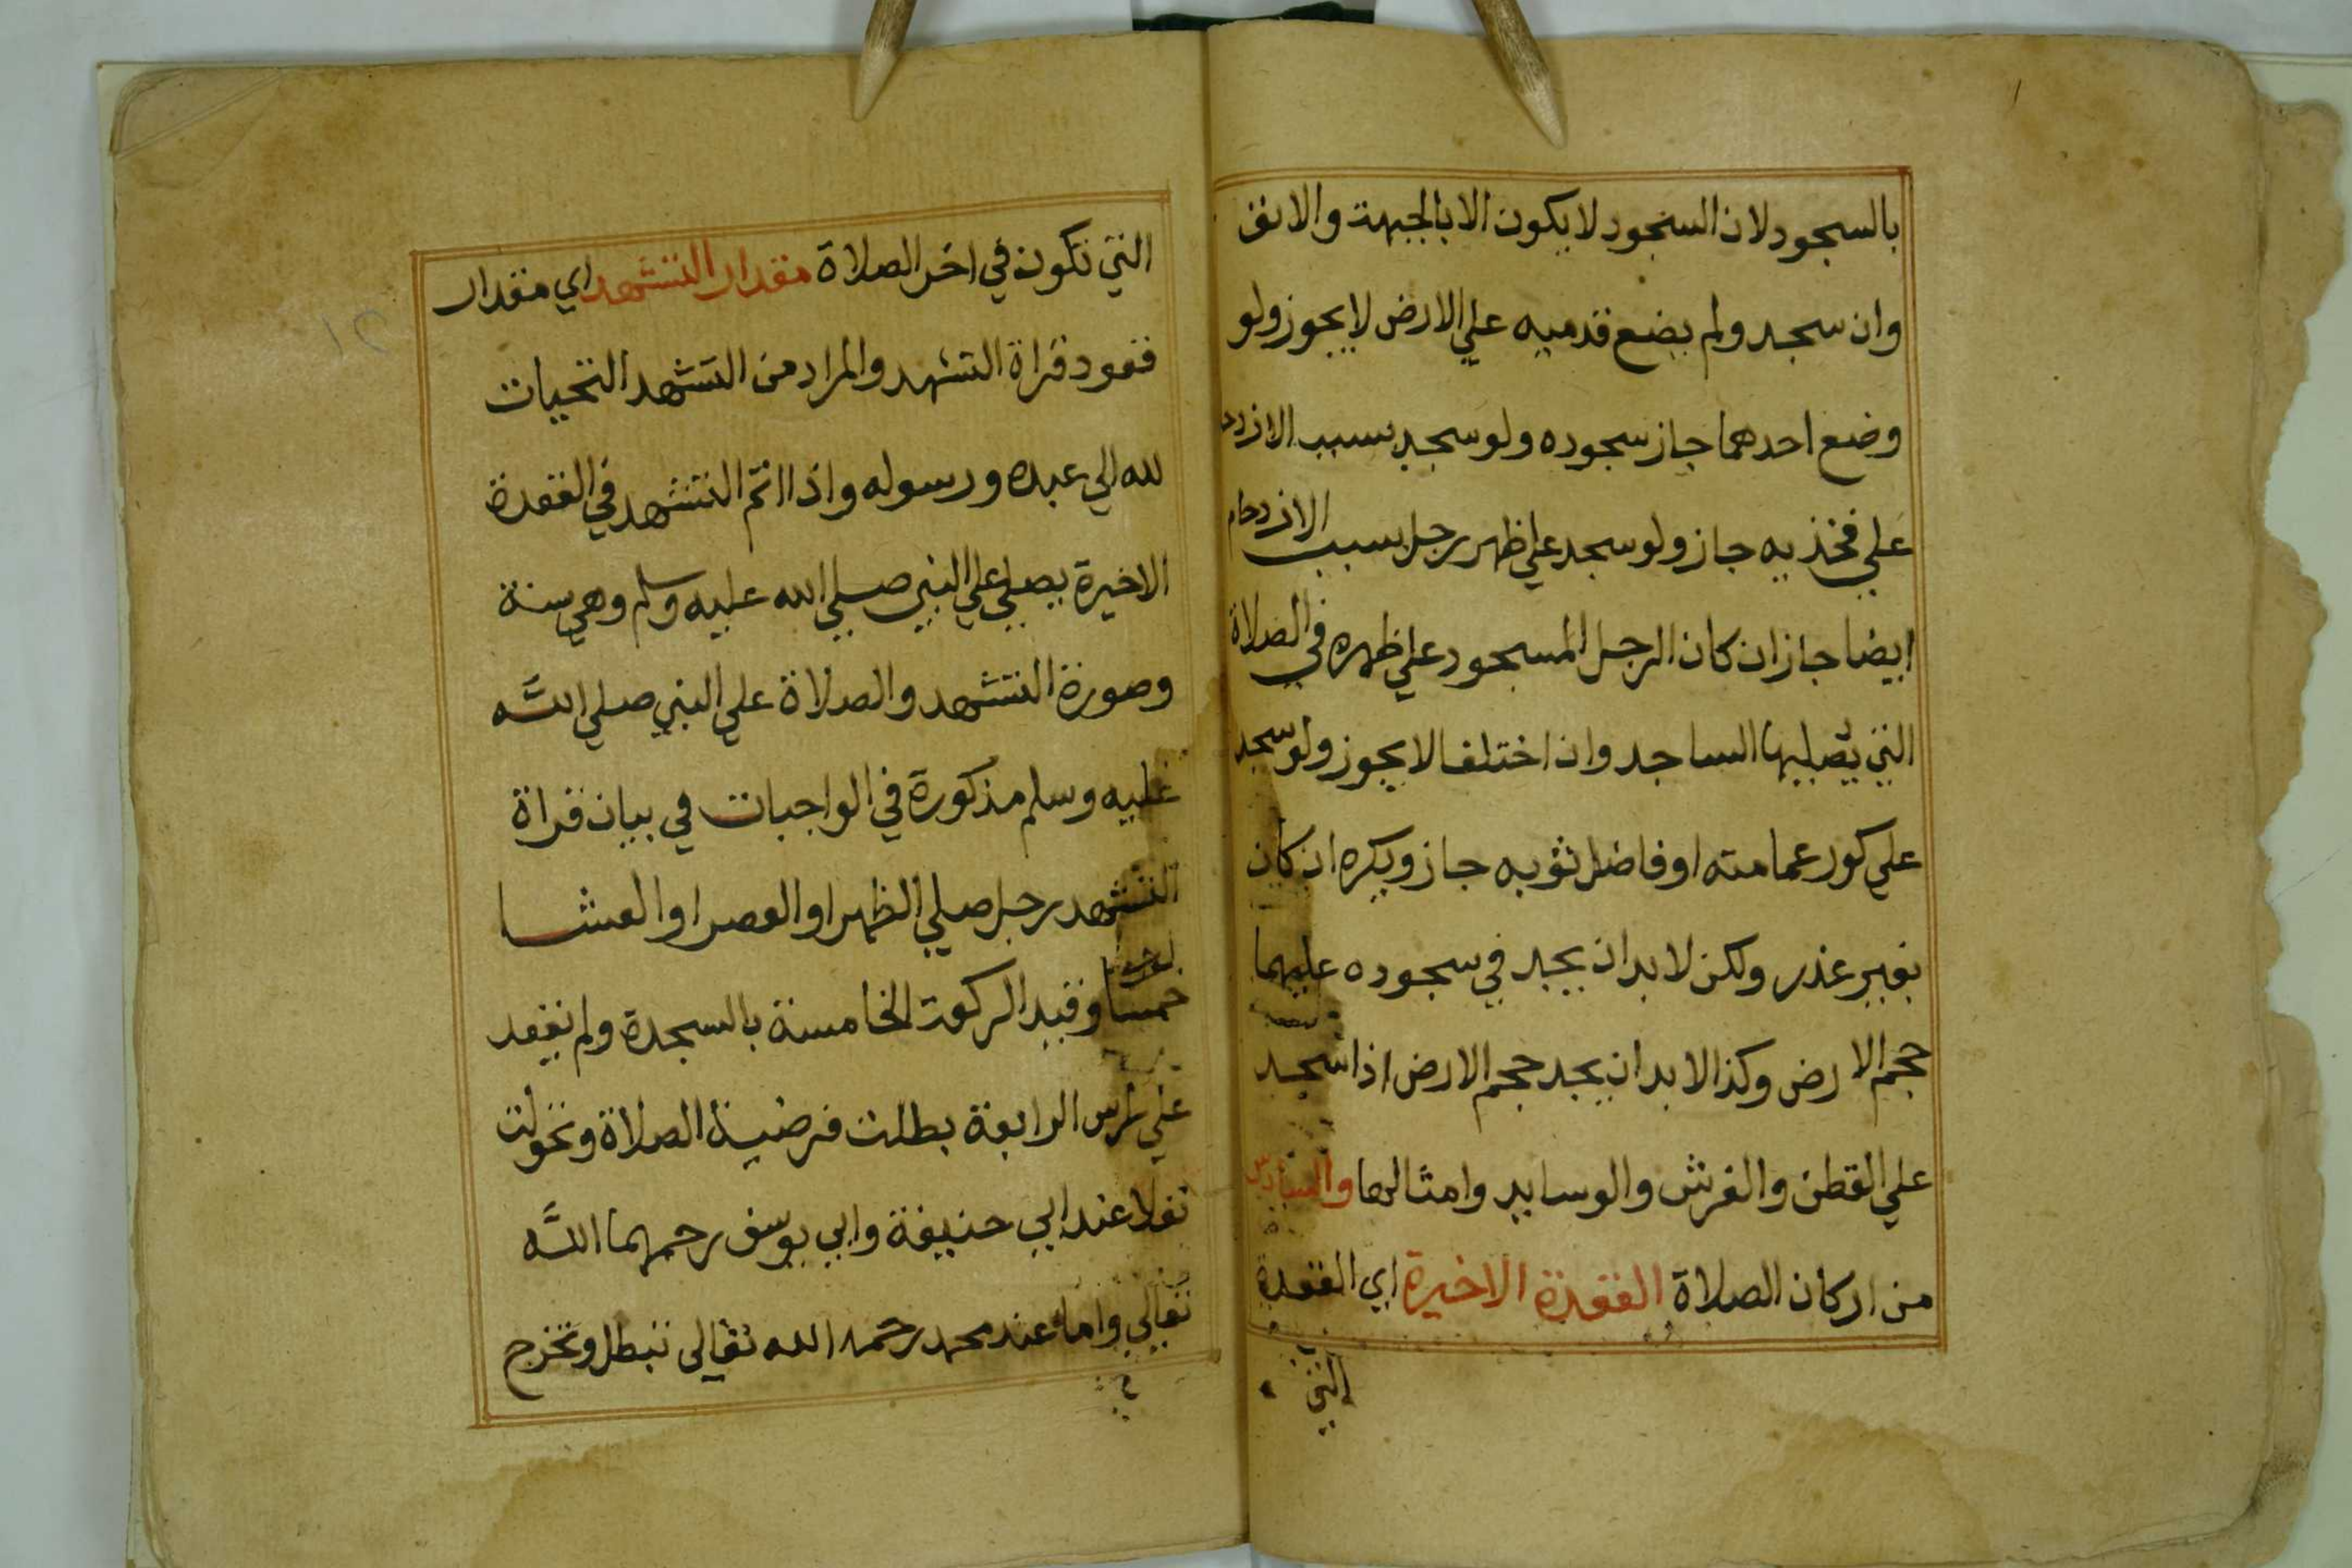 بالسجود لان السجود لا يكون الا بالجبهة والانف
وان سجد ولم يضع قدميه علي الارض لا يجوز ولو
وضع احدهما جاز سجوده ولو سجد بسبب الازدحام
علي فخذيه جاز ولو سجد علي ظهر رجل بسبب الازدحام
ايضا جاز ان كان الرجل المسجود علي ظهره في الصلاة
التي يصليها الساجد وان اختلفا لا يجوز ولو سجد
علي كور عمامته او فاضل ثوبه جاز ويكره ان كان
بغير عذر ولكن لا بد ان يجد في سجوده عليهما
حجم الارض وكذا لا بد ان يجد حجم الارض اذا سجد
علي القطن والفرش والوسايد وامثالها والسادس
من اركان الصلاة القعدة الاخيرة اي القعدة
التي
التي تكون في اخر الصلاة مقدار التشهد اي مقدار
قعود قراة التشهد والمراد من التشهد التحيات
لله الي عبده ورسوله واذا اتم التشهد في القعدة
الاخيرة يصلي علي النبي صلي الله عليه وسلم وهي سنة
وصورة التشهد والصلاة علي النبي صلي الله
عليه وسلم مذكورة في الواجبات في بيان قراة
التشهد رجل صلي الظهر او العصر او العشا
خمسا وقيد الركعة الخامسة بالسجدة ولم يقعد
علي راس الرابعة بطلت فرضية الصلاة وتحولت
نفلا عند ابي حنيفة وابي يوسف رحمهما الله
تعالي واما عند محمد رحمه الله تعالى تبطل وتخرج